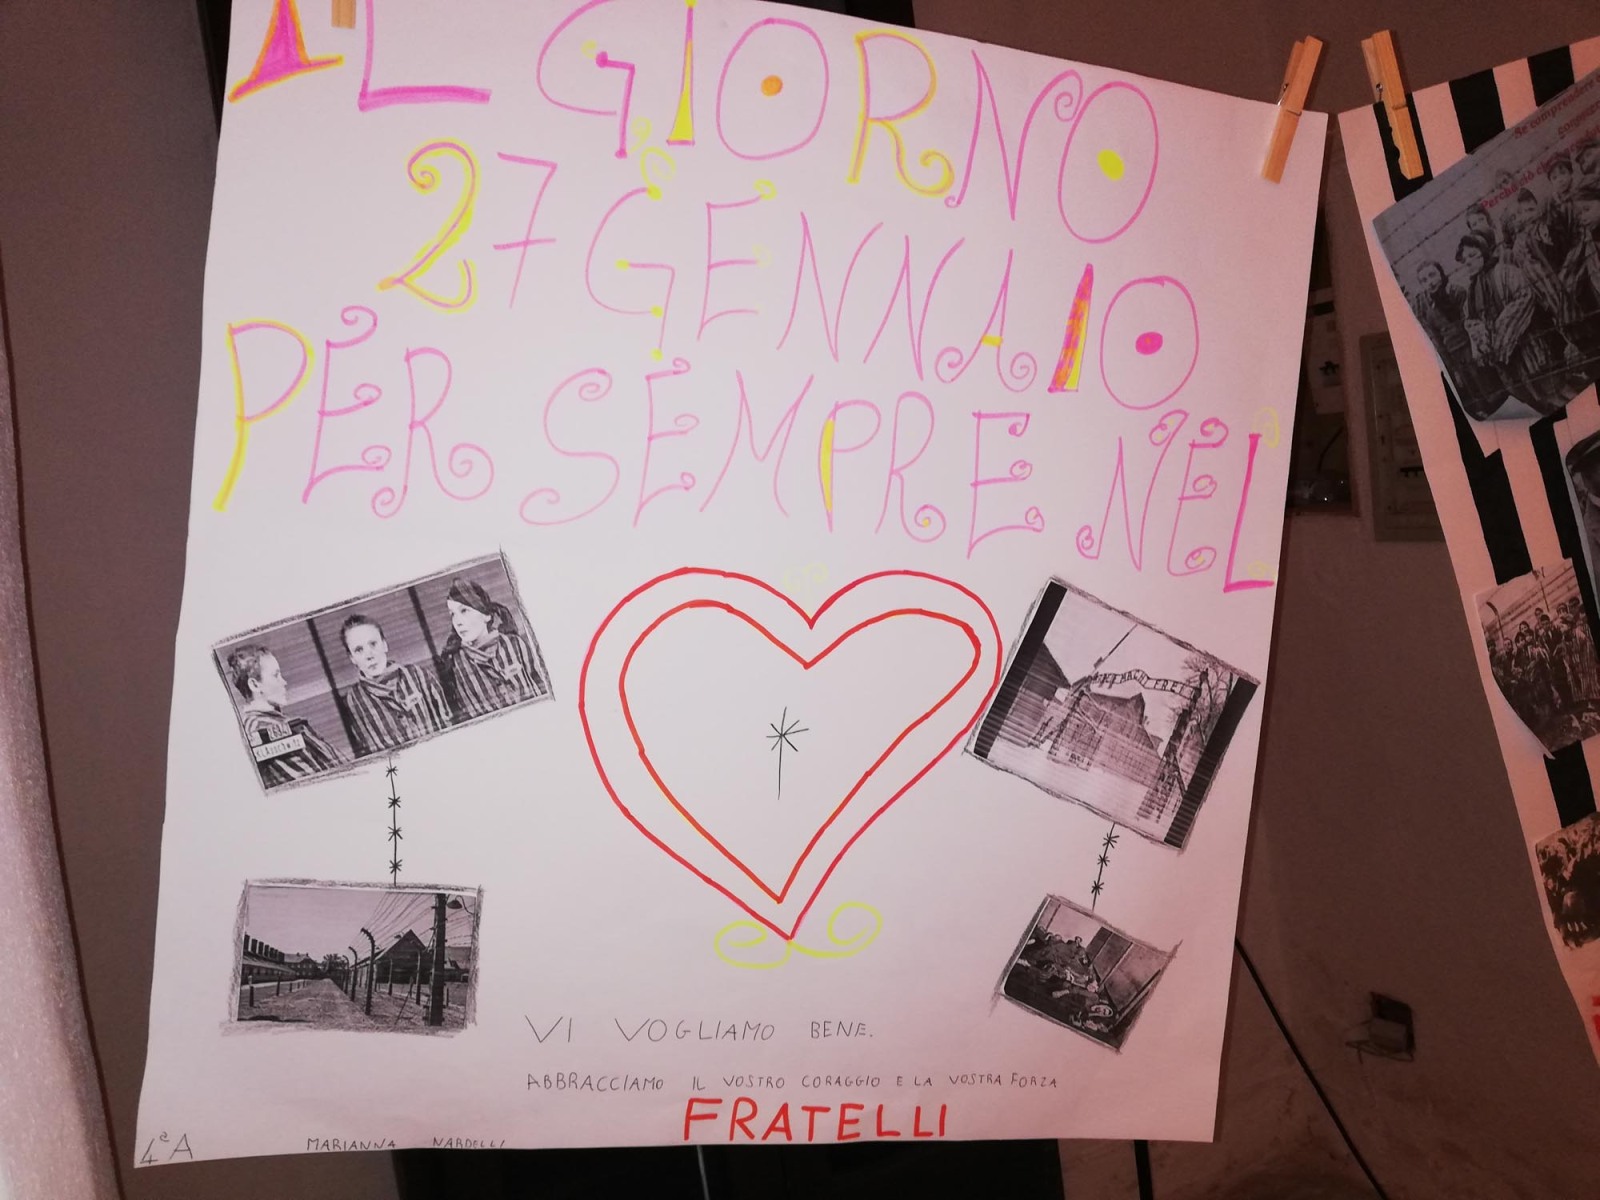 IL GIORNO
27 GENNAIO
PER SEMPRE NEL
VI VOGLIAMO BENE.
ABBRACCIAMO IL VOSTRO CORAGGIO E LA VOSTRA FORZA
FRATELLI
4ª A MARIANNA NARDELLI
Se comprendere è
Perché ciò che è